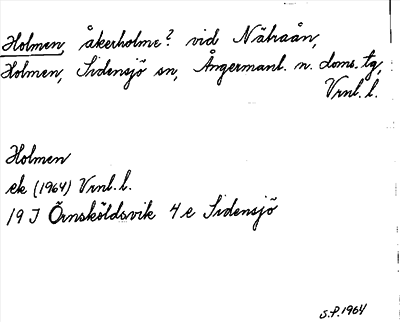 Holmen, åkerholme? vid Nätraån,
Holmen, Sidensjö sn, Ångermanl. n. doms. tg,
Vrnl. l.
Holmen
ek (1964) Vrnl. l.
19 J Örnsköldsvik 4 e Sidensjö
S.P. 1964